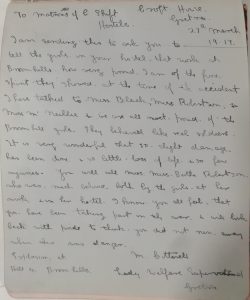 To Matrons of C Shift Croft House,
Hostels Gretna.
27th March
19.17.
I am sending this to ask you to
tell the girls in your hostel, that work at
Broomhills how very proud I am of the fine
spirit they showed at the time of the accident
I have talked to Miss Black, Miss Robertson, &
Miss M'Neillie & we are all most proud of the
Broomhills girls. They behaved like real soldiers.
It is very wonderful that so slight damage
has been done & so little loss of life & so few
injuries. You will all miss Miss Robertson
who was much beloved both by the girls at her
work & in her hostel. I know you all feel that
you have been taking part in this war & will look
back with pride to think you did not run away
when there was danger.
Explosion at M.
Hill in Broomhills. Lady Welfare Superintendent
Gretna